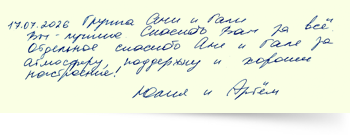 17.07.2026 Группа Ани и Гали
Вы - лучшие Спасибо Вам за всё
Отдельное спасибо Ане и Гале за
атмосферу, поддержку и хорошее
настроение!
Юлия и Артём